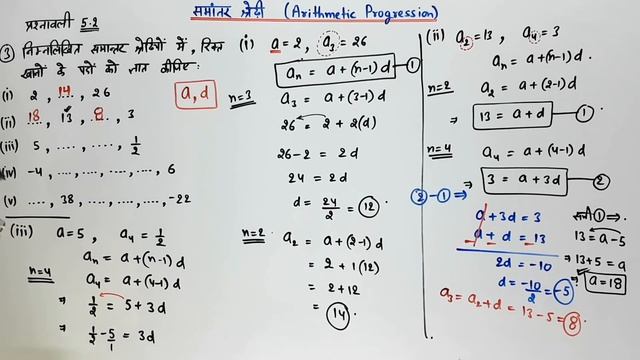 समांतर श्रेढ़ी (Arithmetic Progression)
प्रश्नावली 5.2
③ निम्नलिखित समान्तर श्रेढियों में, रिक्त
खानों के पदों को ज्ञात कीजिए:
(i) 2, 14, 26
a, d
(ii) 18, 13, 8, 3
(iii) 5, ....., ....., 1/2
(iv) -4, ....., ....., ....., ....., 6
(v) ....., 38, ....., ....., ....., -22
(iii) a = 5, a₄ = 1/2
aₙ = a + (n-1) d
n=4 a₄ = a + (4-1) d
⇒ 1/2 = 5 + 3d
⇒ 1/2 - 5/1 = 3d
(i) a = 2, a₃ = 26
aₙ = a + (n-1) d ①
n=3 a₃ = a + (3-1) d
26 = 2 + 2(d)
26-2 = 2d
24 = 2d
d = 24/2 = 12.
n=2 a₂ = a + (2-1) d
= 2 + 1(12)
= 2 + 12
= 14.
(ii) a₂ = 13, a₄ = 3
aₙ = a + (n-1) d.
n=2 a₂ = a + (2-1) d
⇒ 13 = a + d ①
n=4 a₄ = a + (4-1) d
⇒ 3 = a + 3d ②
② - ① ⇒
a + 3d = 3
a + d = 13
- - -
2d = -10
d = -10/2 = -5
समी ① ⇒.
13 = a - 5
⇒ 13 + 5 = a
⇒ a = 18.
a₃ = a₂ + d = 13 - 5 = 8.